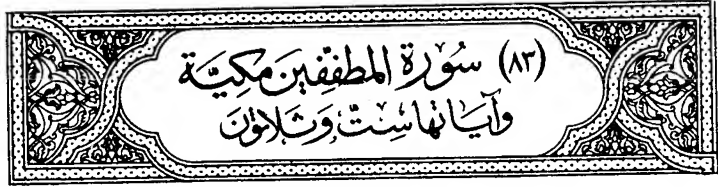 (٨٣) سُورَة المطفّفِين مَكِيَّة
وَآيَاتها سِتٌّ وَثَلَاثُونَ